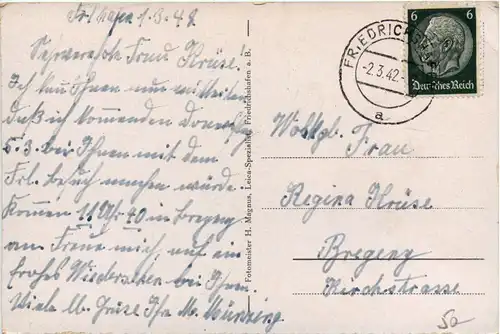 Fr'hafen 1.3.42
Sehrverehrte Frau Krüse!
Ich kann Ihnen nur mitteilen
daß ich kommenden Donnerstag
5.3. bei Ihnen mit dem
Frl. besuch machen würde.
Kommen 11 Uhr 40 in Bregenz
an. Freue mich, auf ein
frohes Wiedersehen bei Ihnen.
Viele lb. Grüse Ihr M. Münzing.
Fotomeister H. Magnus, Leica-Spezialist, Friedrichshafen a. B.
FRIEDRICHSHAFEN
-2.3.42.
a
6 6
Deutsches Reich
Wohlgb. Frau
Regina Krüse
Bregenz
Kirchstrasse
5a